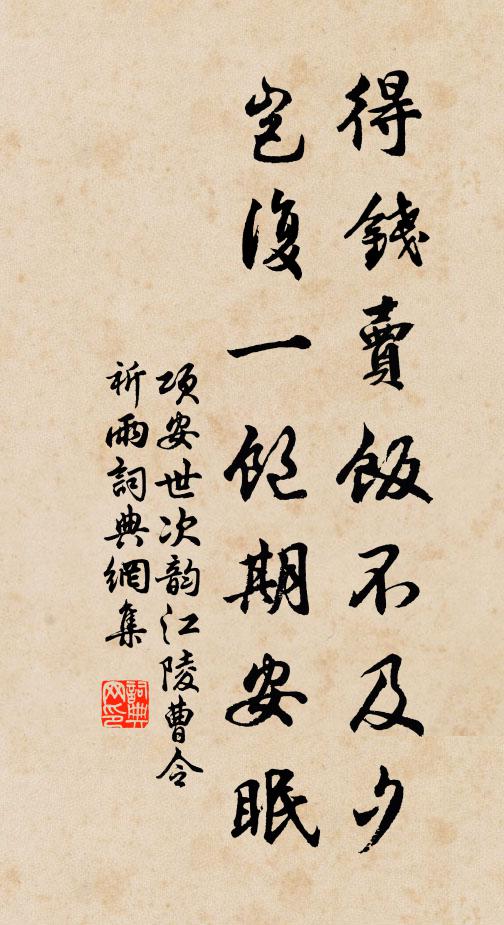 得錢賣飯不及夕
豈復一飽期安眠
項安世次韵江陵曹令
祈雨詞典網集
詞典网印